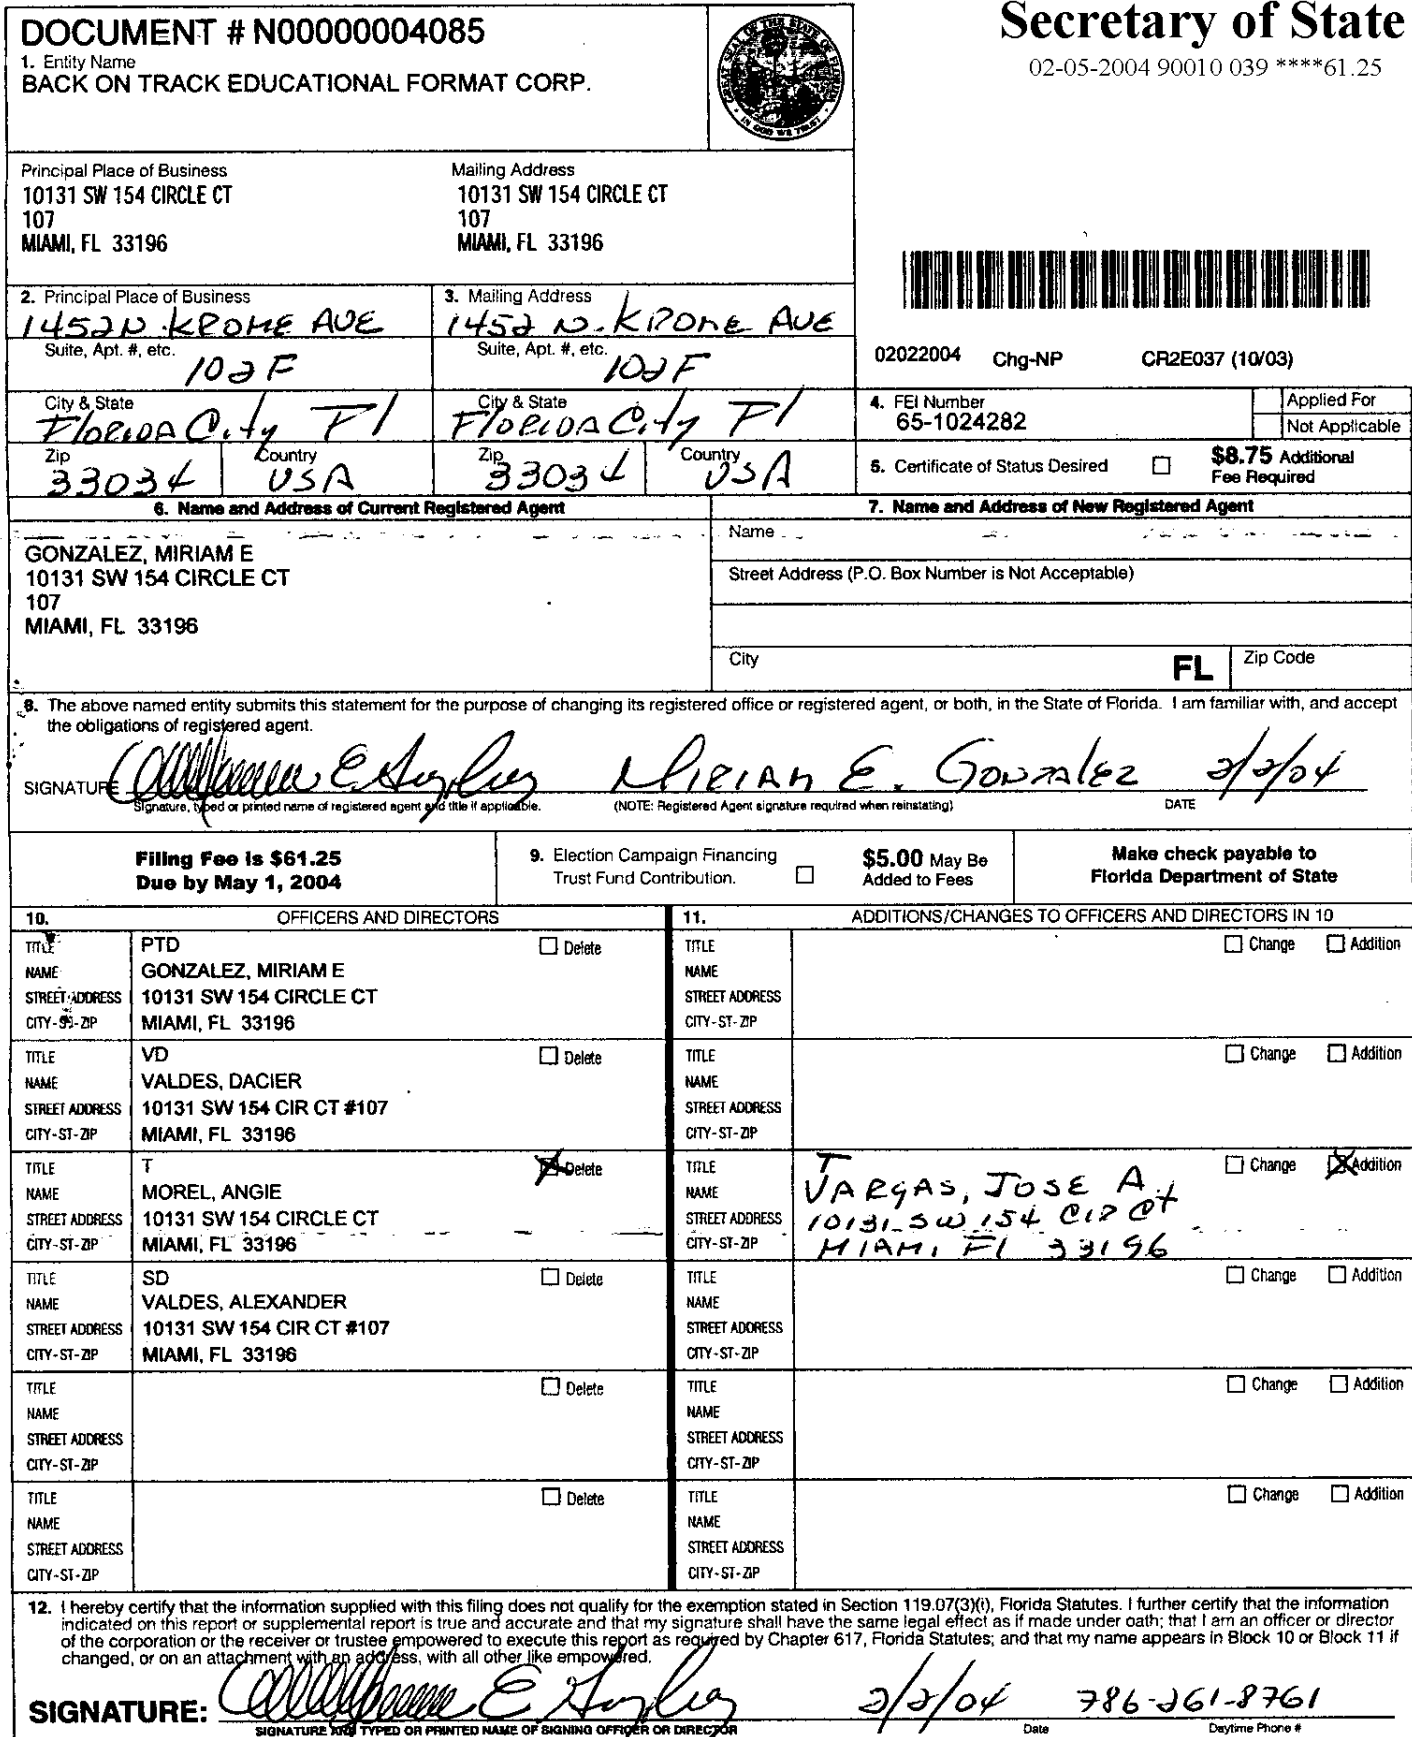 DOCUMENT # N00000004085
1. Entity Name
BACK ON TRACK EDUCATIONAL FORMAT CORP.
GREAT SEAL OF THE STATE OF FLORIDA
IN GOD WE TRUST
Secretary of State
02-05-2004 90010 039 ****61.25
Principal Place of Business
10131 SW 154 CIRCLE CT
107
MIAMI, FL 33196
Mailing Address
10131 SW 154 CIRCLE CT
107
MIAMI, FL 33196
2. Principal Place of Business
1452 N. KROME AVE
Suite, Apt. #, etc.
102 F
City & State
Florida City Fl
Zip
33034
Country
USA
3. Mailing Address
1452 N. KROME AVE
Suite, Apt. #, etc.
102 F
City & State
Florida City Fl
Zip
33034
Country
USA
02022004 Chg-NP CR2E037 (10/03)
4. FEI Number
65-1024282
Applied For
Not Applicable
5. Certificate of Status Desired
$8.75 Additional
Fee Required
6. Name and Address of Current Registered Agent
GONZALEZ, MIRIAM E
10131 SW 154 CIRCLE CT
107
MIAMI, FL 33196
7. Name and Address of New Registered Agent
Name
Street Address (P.O. Box Number is Not Acceptable)
City FL Zip Code
8. The above named entity submits this statement for the purpose of changing its registered office or registered agent, or both, in the State of Florida. I am familiar with, and accept
the obligations of registered agent.
SIGNATURE MIRIAM E. GONZALEZ 2/2/04
Signature, typed or printed name of registered agent and title if applicable. (NOTE: Registered Agent signature required when reinstating) DATE
Filing Fee is $61.25
Due by May 1, 2004
9. Election Campaign Financing
Trust Fund Contribution.
$5.00 May Be
Added to Fees
Make check payable to
Florida Department of State
10. OFFICERS AND DIRECTORS
11. ADDITIONS/CHANGES TO OFFICERS AND DIRECTORS IN 10
TITLE PTD Delete
NAME GONZALEZ, MIRIAM E
STREET ADDRESS 10131 SW 154 CIRCLE CT
CITY-ST-ZIP MIAMI, FL 33196
TITLE Change Addition
NAME
STREET ADDRESS
CITY-ST-ZIP
TITLE VD Delete
NAME VALDES, DACIER
STREET ADDRESS 10131 SW 154 CIR CT #107
CITY-ST-ZIP MIAMI, FL 33196
TITLE Change Addition
NAME
STREET ADDRESS
CITY-ST-ZIP
TITLE T Delete
NAME MOREL, ANGIE
STREET ADDRESS 10131 SW 154 CIRCLE CT
CITY-ST-ZIP MIAMI, FL 33196
TITLE T Change Addition
NAME VARGAS, JOSE A
STREET ADDRESS 10131 SW 154 CIR Ct
CITY-ST-ZIP MIAMI Fl 33196
TITLE SD Delete
NAME VALDES, ALEXANDER
STREET ADDRESS 10131 SW 154 CIR CT #107
CITY-ST-ZIP MIAMI, FL 33196
TITLE Change Addition
NAME
STREET ADDRESS
CITY-ST-ZIP
TITLE Delete
NAME
STREET ADDRESS
CITY-ST-ZIP
TITLE Change Addition
NAME
STREET ADDRESS
CITY-ST-ZIP
TITLE Delete
NAME
STREET ADDRESS
CITY-ST-ZIP
TITLE Change Addition
NAME
STREET ADDRESS
CITY-ST-ZIP
12. I hereby certify that the information supplied with this filing does not qualify for the exemption stated in Section 119.07(3)(i), Florida Statutes. I further certify that the information
indicated on this report or supplemental report is true and accurate and that my signature shall have the same legal effect as if made under oath; that I am an officer or director
of the corporation or the receiver or trustee empowered to execute this report as required by Chapter 617, Florida Statutes; and that my name appears in Block 10 or Block 11 if
changed, or on an attachment with an address, with all other like empowered.
SIGNATURE: 2/2/04 786-261-8761
SIGNATURE AND TYPED OR PRINTED NAME OF SIGNING OFFICER OR DIRECTOR Date Daytime Phone #